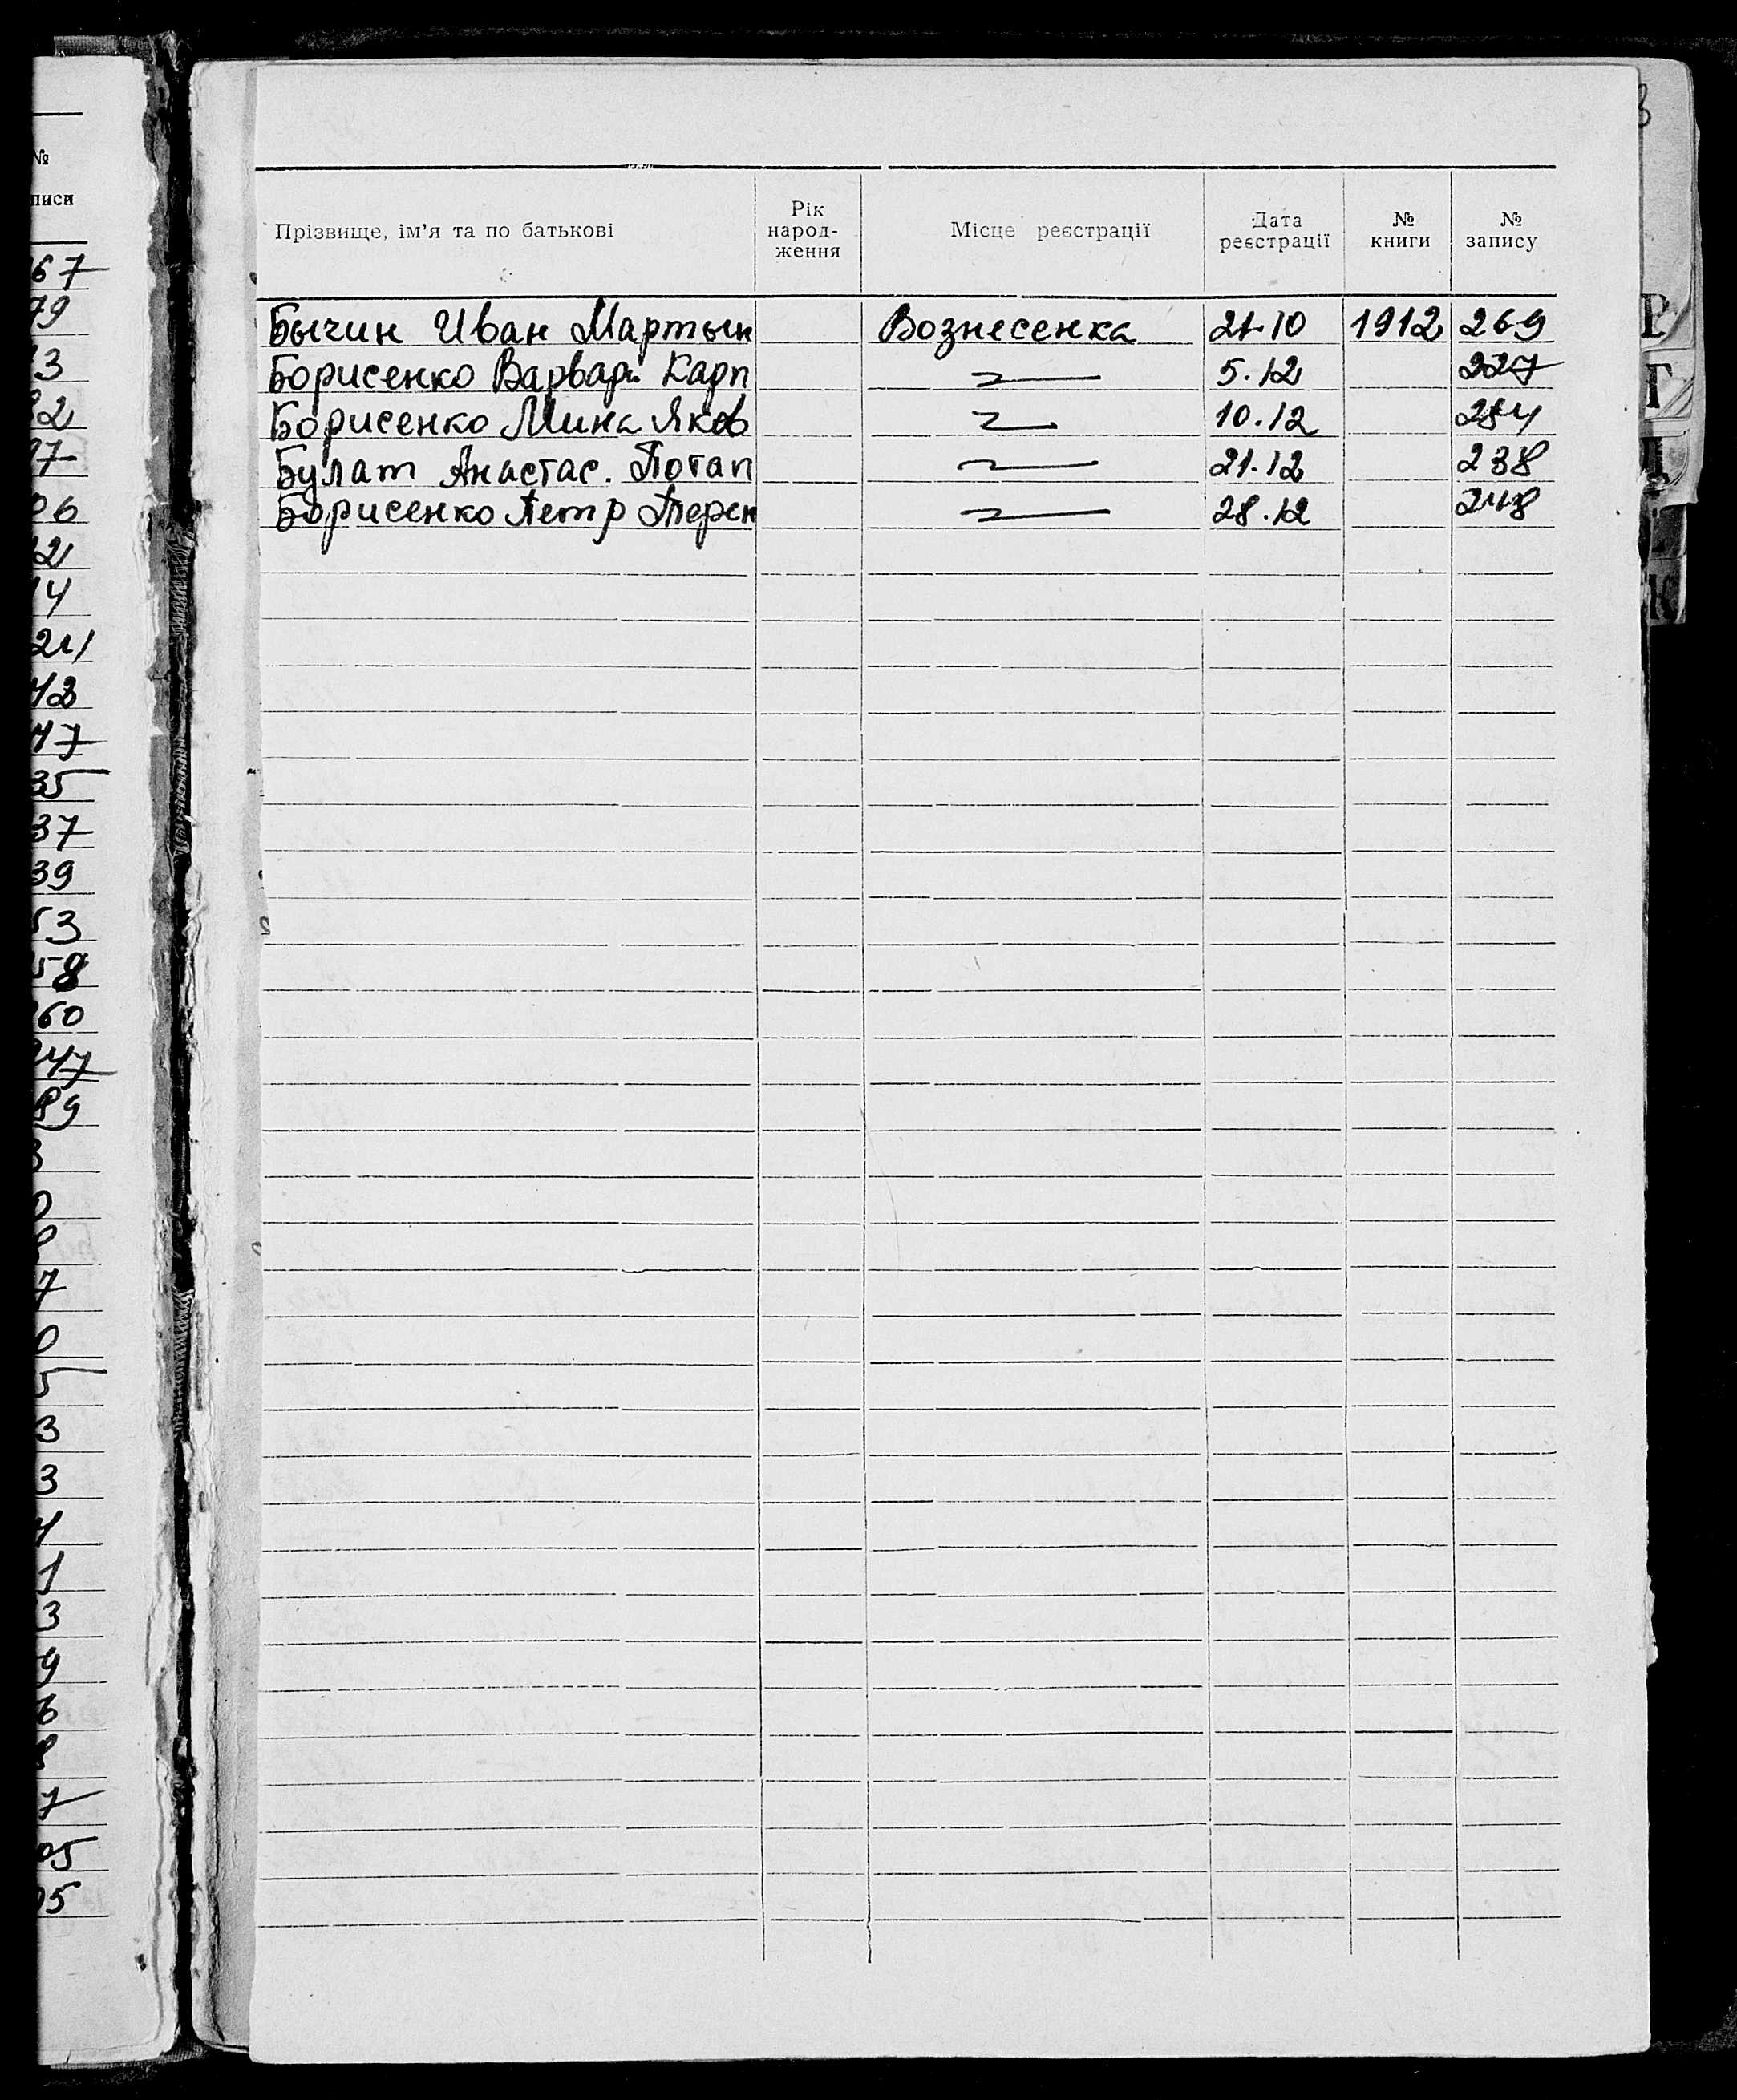 №
писи
67
79
13
32
37
06
12
14
24
42
47
35
37
39
53
58
60
247
89
7
0
3
3
4
1
3
9
8
7
05
05
Прізвище, ім'я та по батькові Рік народ- ження Місце реєстрації Дата реєстрації № книги № запису
Бычин Иван Мартын Вознесенка 21.10 1912 269
Борисенко Варвара Карп 5.12 227
Борисенко Мина Яков 10.12 284
Булат Анастас. Потап 21.12 238
Борисенко Петр Терен 28.12 248